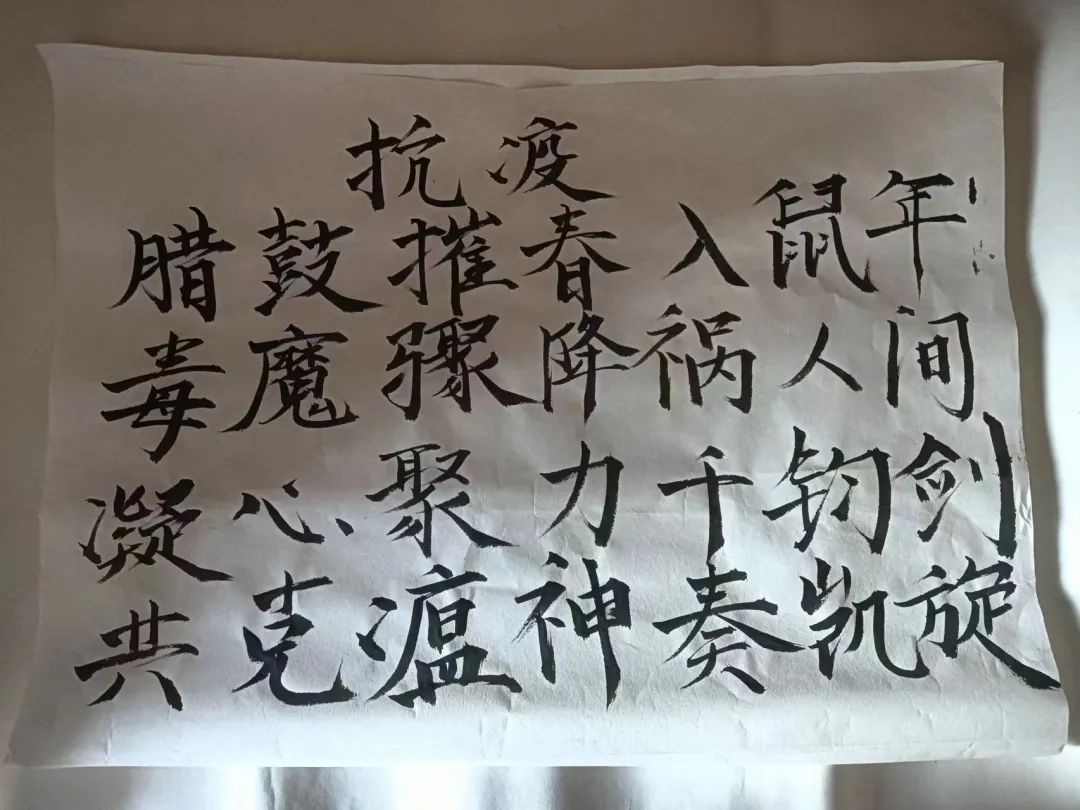 抗疫
腊鼓摧春入鼠年
毒魔骤降祸人间
凝心聚力千钧剑
共克瘟神奏凯旋